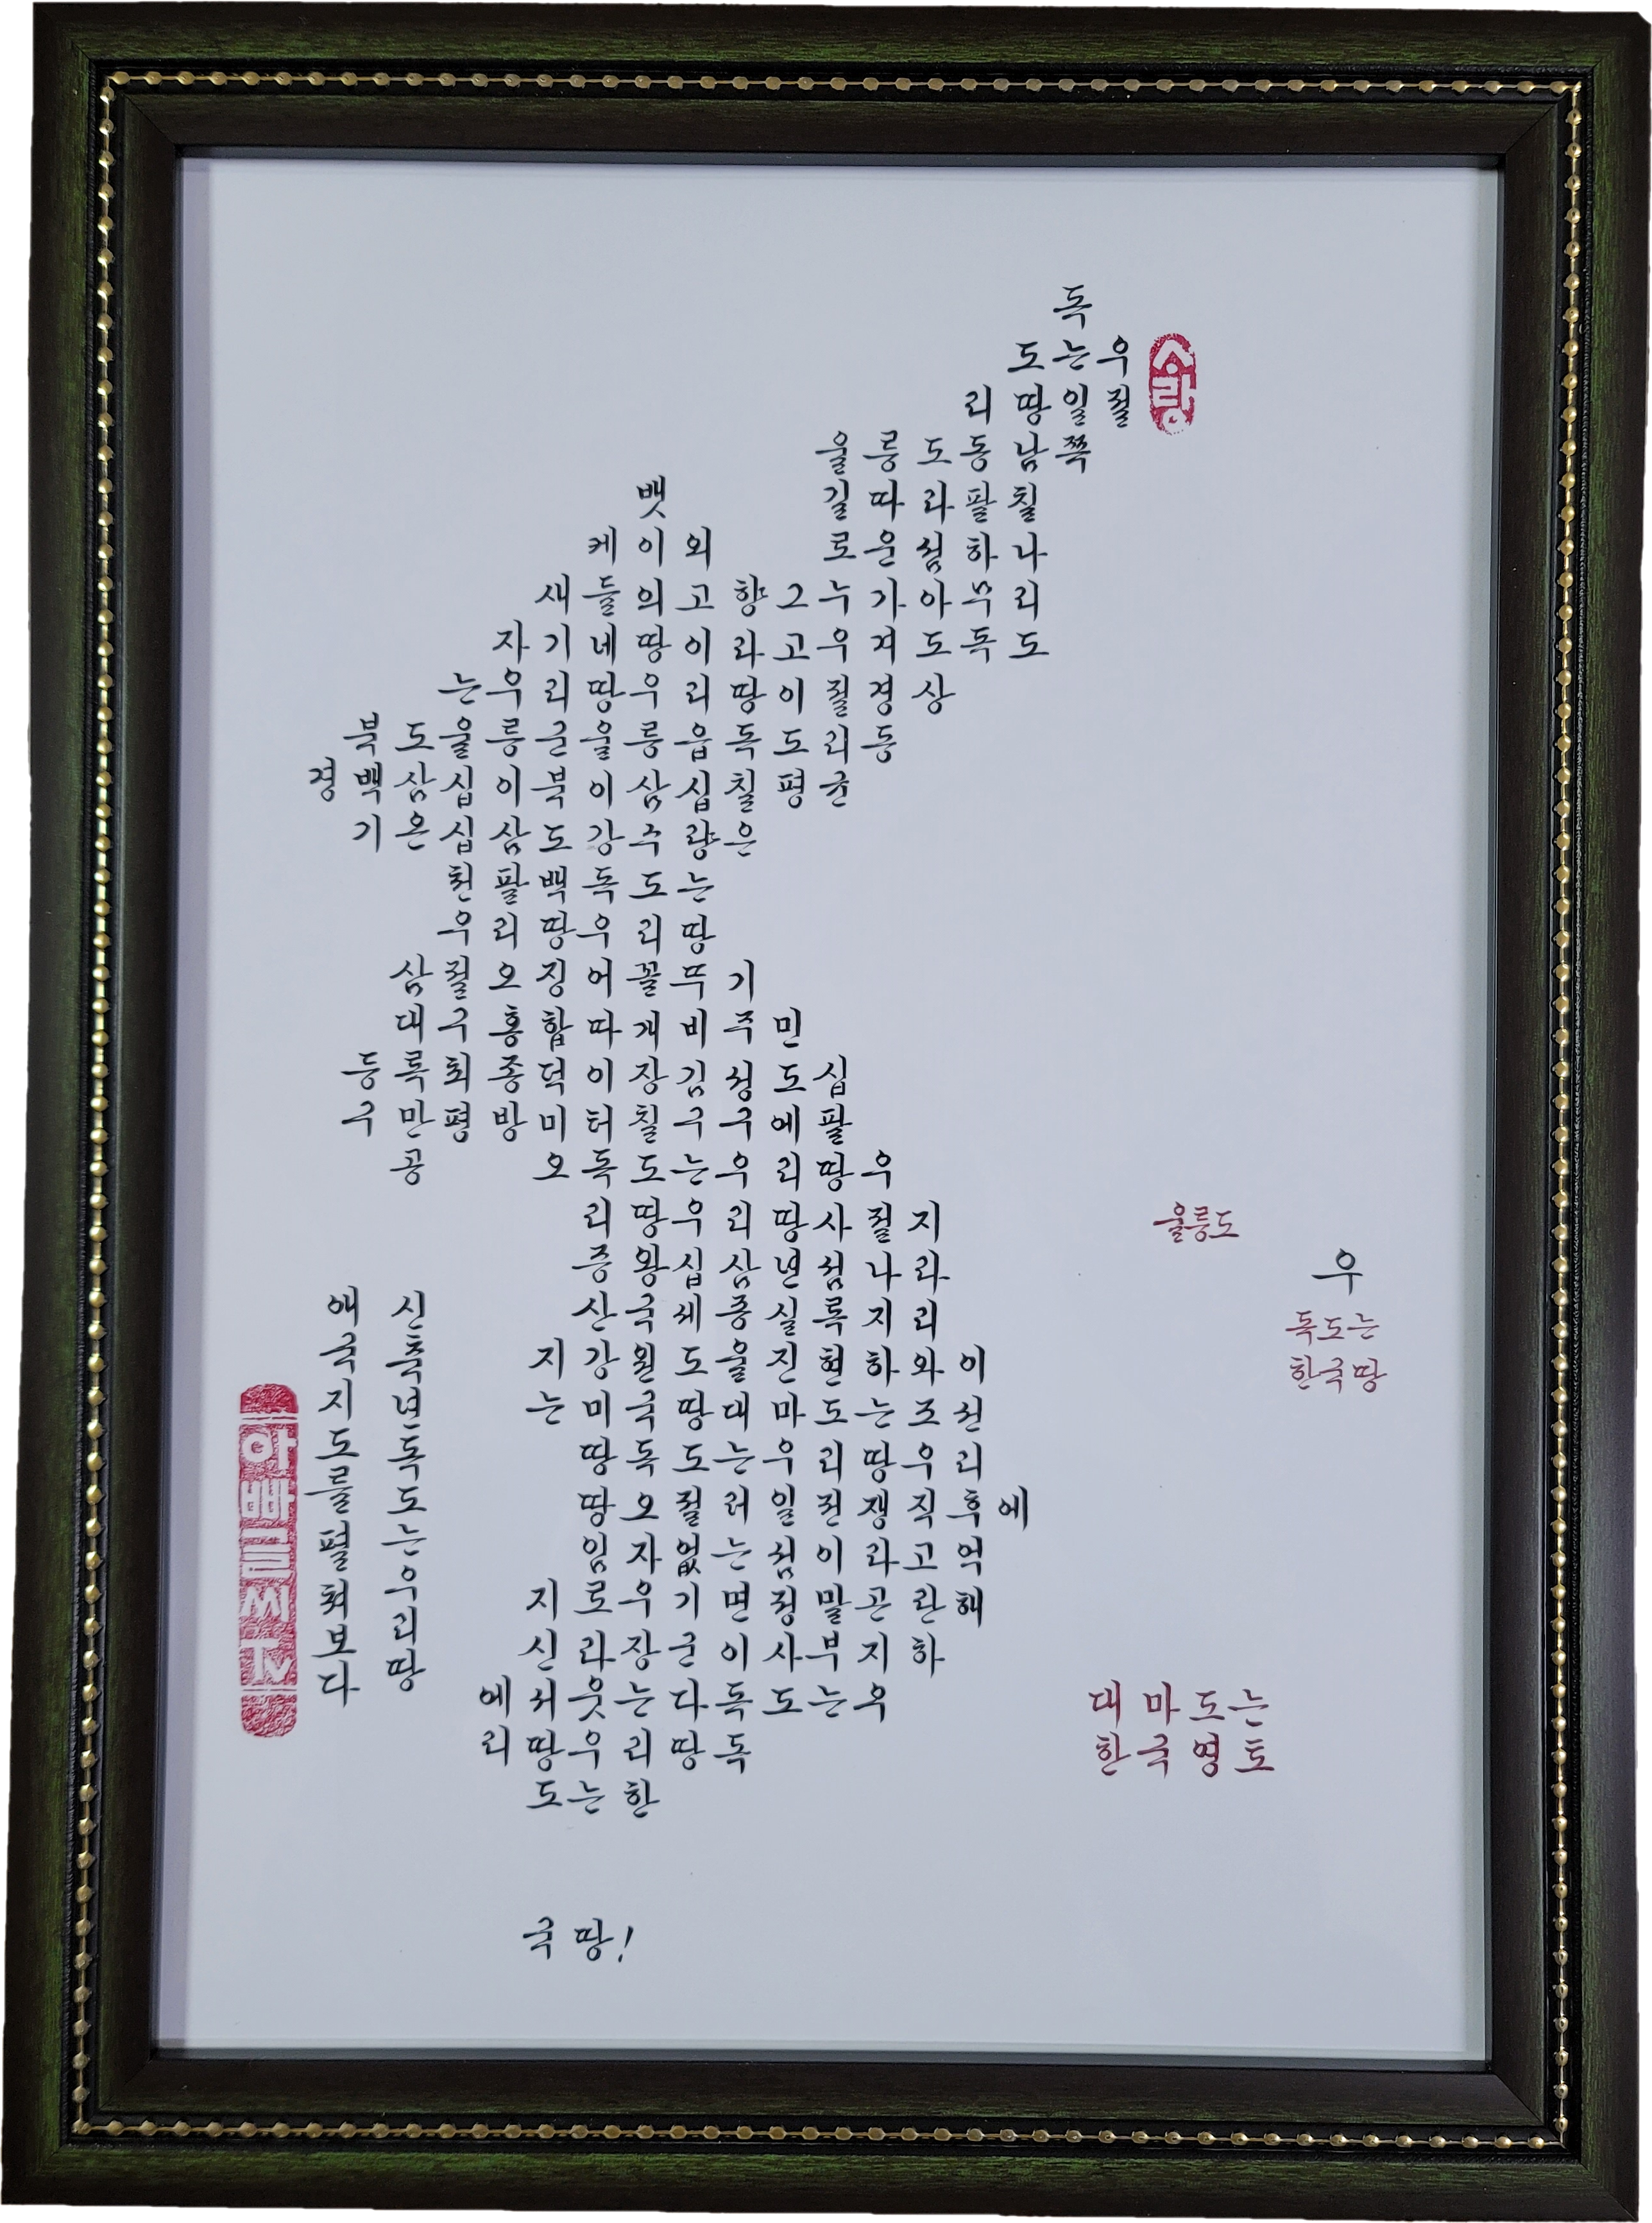 독
도 는 우
리 땅 일 절
울 릉 도 동 남 쪽
뱃 길 따 라 팔 칠
케 이 외 로 운 섬 하 나
새 들 의 고 향 그 누 가 아 무 리
자 기 네 땅 이 라 고 우 겨 도 독 도
는 우 리 땅 우 리 땅 이 절 경 상
북 도 울 릉 군 울 릉 읍 독 도 리 동
경 백 삼 십 이 북 이 삼 십 칠 평 균
기 온 십 삼 도 강 수 량 은
천 팔 백 독 도 는
우 리 땅 우 리 땅
삼 절 오 징 어 꼴 뚜 기
대 구 홍 합 따 개 비 주 민
등 록 최 종 덕 이 장 김 성 도 십
구 만 평 방 미 터 칠 구 구 에 팔
공 오 독 도 는 우 리 땅 우
리 땅 우 리 땅 사 절 지
증 왕 십 삼 년 섬 나 라
산 국 세 종 실 록 지 리
지 강 원 도 울 진 현 하 와 이
는 미 국 땅 대 마 도 는 조 선
땅 독 도 는 우 리 땅 우 리
땅 오 절 러 일 전 쟁 직 후 에
임 자 없 는 섬 이 라 고 억
지 로 우 기 면 정 말 곤 란 해
신 라 장 군 이 사 부 지 하
에 서 웃 는 다 독 도 는 우
리 땅 우 리 땅 독
도 는 한
국 땅 !
사랑
울릉도
우
독도는
한국땅
대 마 도 는
한 국 영 토
신축년독도는우리땅
애국지도를펼쳐보다
아빠글씨TV